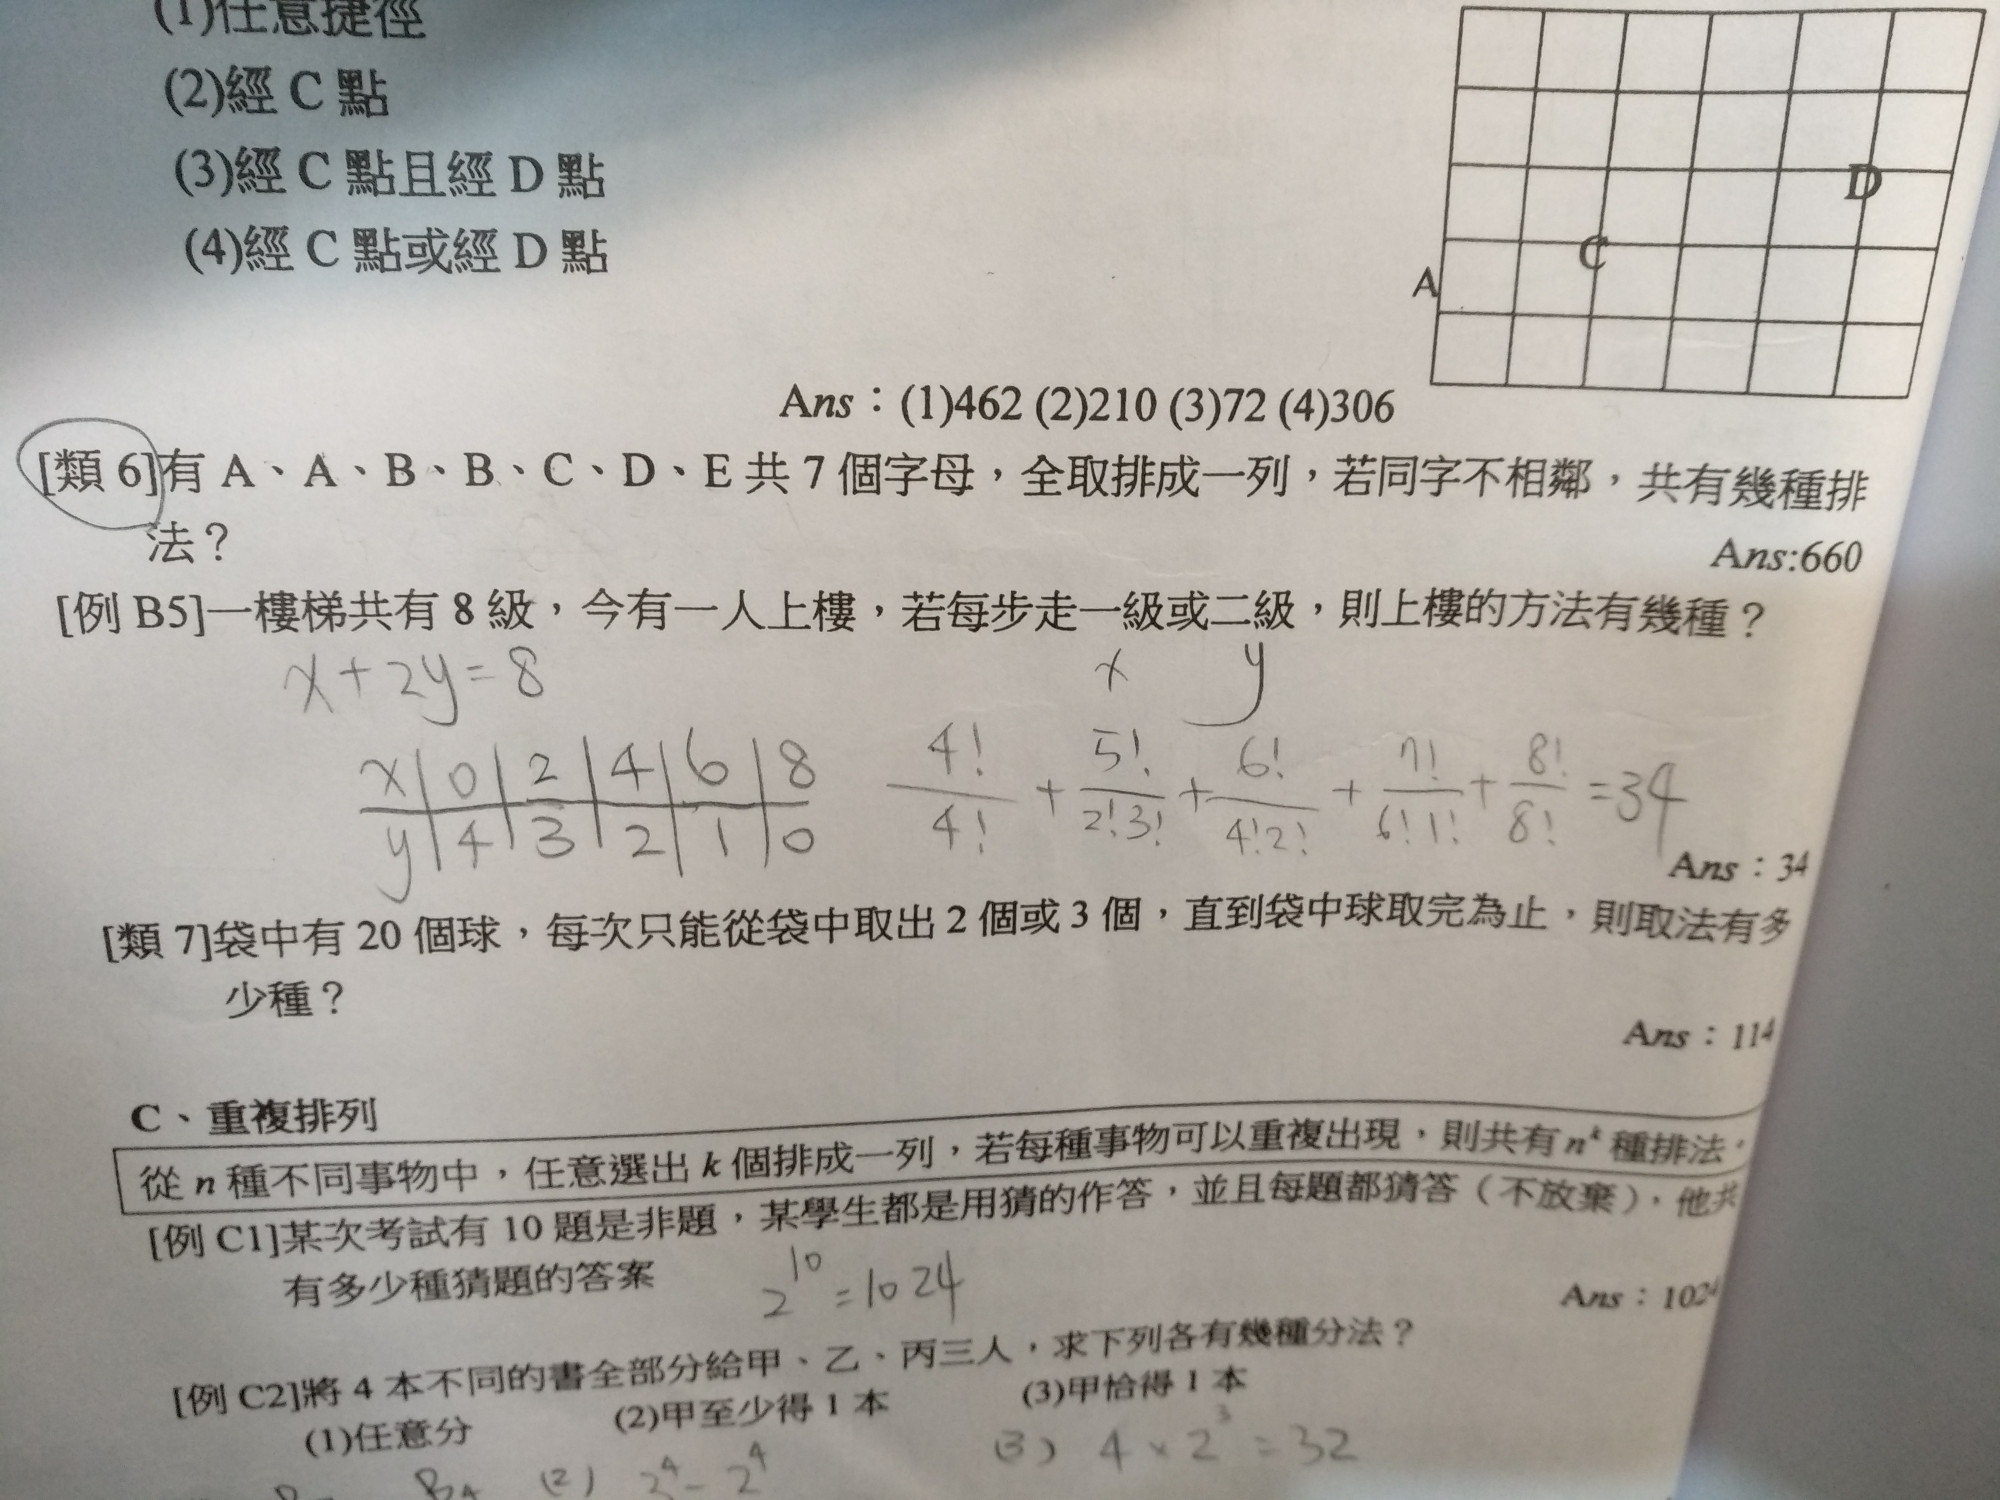 (1)任意捷徑
(2)經 C 點
(3)經 C 點且經 D 點
(4)經 C 點或經 D 點
D
C
A
Ans：(1)462 (2)210 (3)72 (4)306
[類 6]有 A、A、B、B、C、D、E 共 7 個字母，全取排成一列，若同字不相鄰，共有幾種排
法？
Ans:660
[例 B5]一樓梯共有 8 級，今有一人上樓，若每步走一級或二級，則上樓的方法有幾種？
x+2y=8
x y
x 0 2 4 6 8
y 4 3 2 1 0
4!/4! + 5!/2!3! + 6!/4!2! + 7!/6!1! + 8!/8! =34
Ans：34
[類 7]袋中有 20 個球，每次只能從袋中取出 2 個或 3 個，直到袋中球取完為止，則取法有多
少種？
Ans：114
C、重複排列
從 n 種不同事物中，任意選出 k 個排成一列，若每種事物可以重複出現，則共有 nᵏ 種排法。
[例 C1]某次考試有 10 題是非題，某學生都是用猜的作答，並且每題都猜答（不放棄），他共
有多少種猜題的答案
2¹⁰=1024
Ans：1024
[例 C2]將 4 本不同的書全部分給甲、乙、丙三人，求下列各有幾種分法？
(1)任意分 (2)甲至少得 1 本 (3)甲恰得 1 本
(2) 3⁴-2⁴ (3) 4×2³=32